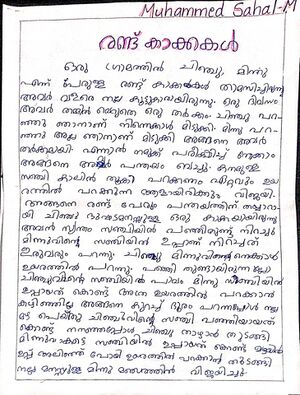 Muhammed Sahal-M
രണ്ട് കാക്കകൾ
ഒരു ഗ്രാമത്തിൽ ചിഞ്ചു, മിന്നു
എന്ന് പേരുള്ള രണ്ട് കാക്കകൾ താമസിച്ചിരുന്നു
അവർ വളരെ നല്ല കൂട്ടുകാരായിരുന്നു. ഒരു ദിവസം
അവർ തമ്മിൽ ഒരു തർക്കം. ചിഞ്ചു പറ
ഞ്ഞു ഞാനാണ് നിന്നെക്കാൾ മിടുക്കി. മിന്നു പറ
ഞ്ഞു അല്ല ഞാനാണ് മിടുക്കി അങ്ങനെ അവർ
തർക്കമായി. എന്നാൽ നമുക്ക് പരീക്ഷിച്ച് നോക്കാം
അങ്ങനെ അവർ പന്തയം വെച്ചു.
സഞ്ചി കാലിൽ തൂക്കി പറക്കണം ഏറ്റവും ഉയ
രത്തിൽ പറക്കുന്ന ആളായിരിക്കും വിജയി.
അങ്ങനെ രണ്ട് പേരും പന്തയത്തിന് തയ്യാറാ
യി ചിഞ്ചു ഒരു കാക്കയായിരുന്നു
അവൻ സ്വന്തം സഞ്ചിയിൽ പഞ്ഞിയുന്ന് നിറച്ചു
മിന്നുവിന്റെ സഞ്ചിയിൽ ഉപ്പാണ് നിറച്ചത്
ഇരുവരും പറന്നു. ചിഞ്ചു മിന്നുവിനെക്കാൾ
ഉയരത്തിൽ പറന്നു. പഞ്ഞി
ചിഞ്ചുവിന്റെ സഞ്ചിയിൽ മിന്നുവിന്റെ സഞ്ചിയിൽ
ഉപ്പായത് കൊണ്ട് അത്ര ഉയരത്തിൽ പറക്കാൻ
കഴിഞ്ഞില്ല അങ്ങനെ കുറച്ച് ദൂരം പറന്നപ്പോൾ നല്ല
മഴ പെയ്തു ചിഞ്ചുവിന്റെ സഞ്ചി പഞ്ഞിയായത്
കൊണ്ട് നനഞ്ഞപ്പോൾ ചിഞ്ചു താഴാൻ തുടങ്ങി
മിന്നുവാകട്ടെ സഞ്ചിയിൽ ഉപ്പായത് കൊണ്ട്
ഉപ്പ് അലിഞ്ഞ് പോയി ഉയരത്തിൽ പറക്കാൻ തുടങ്ങി
നല്ല മനസ്സുള്ള മിന്നു മത്സരത്തിൽ വിജയിച്ചു.